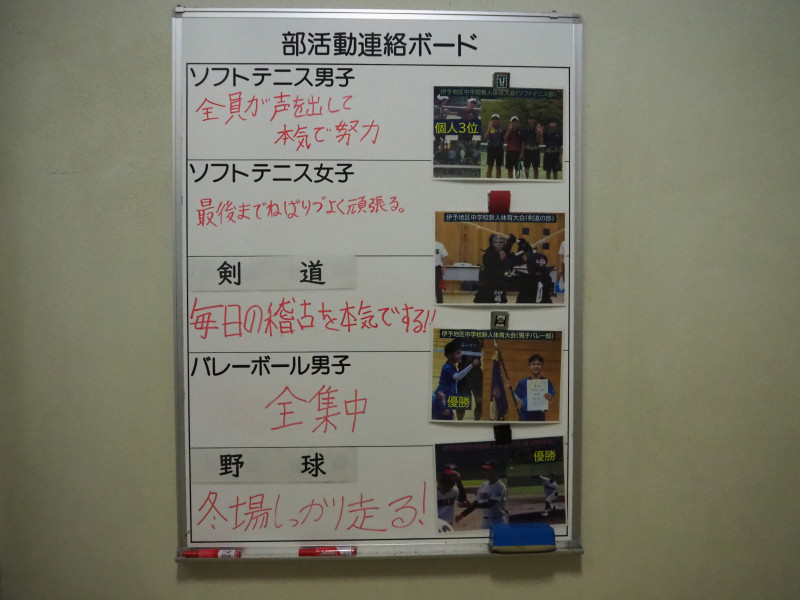 部活動連絡ボード
ソフトテニス男子
全員が声を出して
本気で努力
伊予地区中学校新人体育大会(ソフトテニス部)
個人3位
ソフトテニス女子
最後までねばりづよく頑張る。
伊予地区中学校新人体育大会(剣道の部)
剣 道
毎日の稽古を本気でする!!
伊予地区中学校新人体育大会(男子バレー部)
優勝
バレーボール男子
全集中
野 球
優勝
冬場しっかり走る!